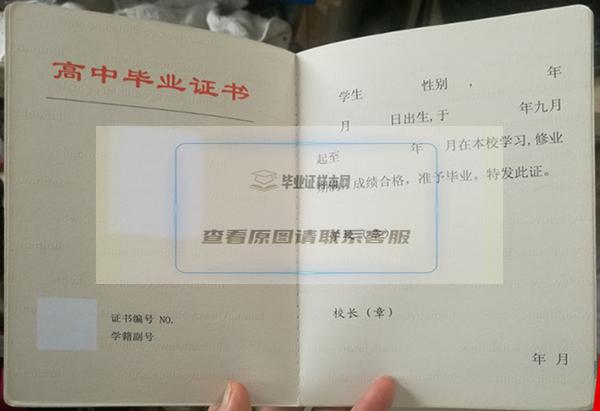 高中毕业证书
证书编号 NO.
学籍副号
学生 性别 ， 年
月 日出生,于 年九月
起至 年 月在本校学习,修业
期满，成绩合格，准予毕业。特发此证。
学校（章）
校长（章）
年 月
毕业证样本网
查看原图请联系客服